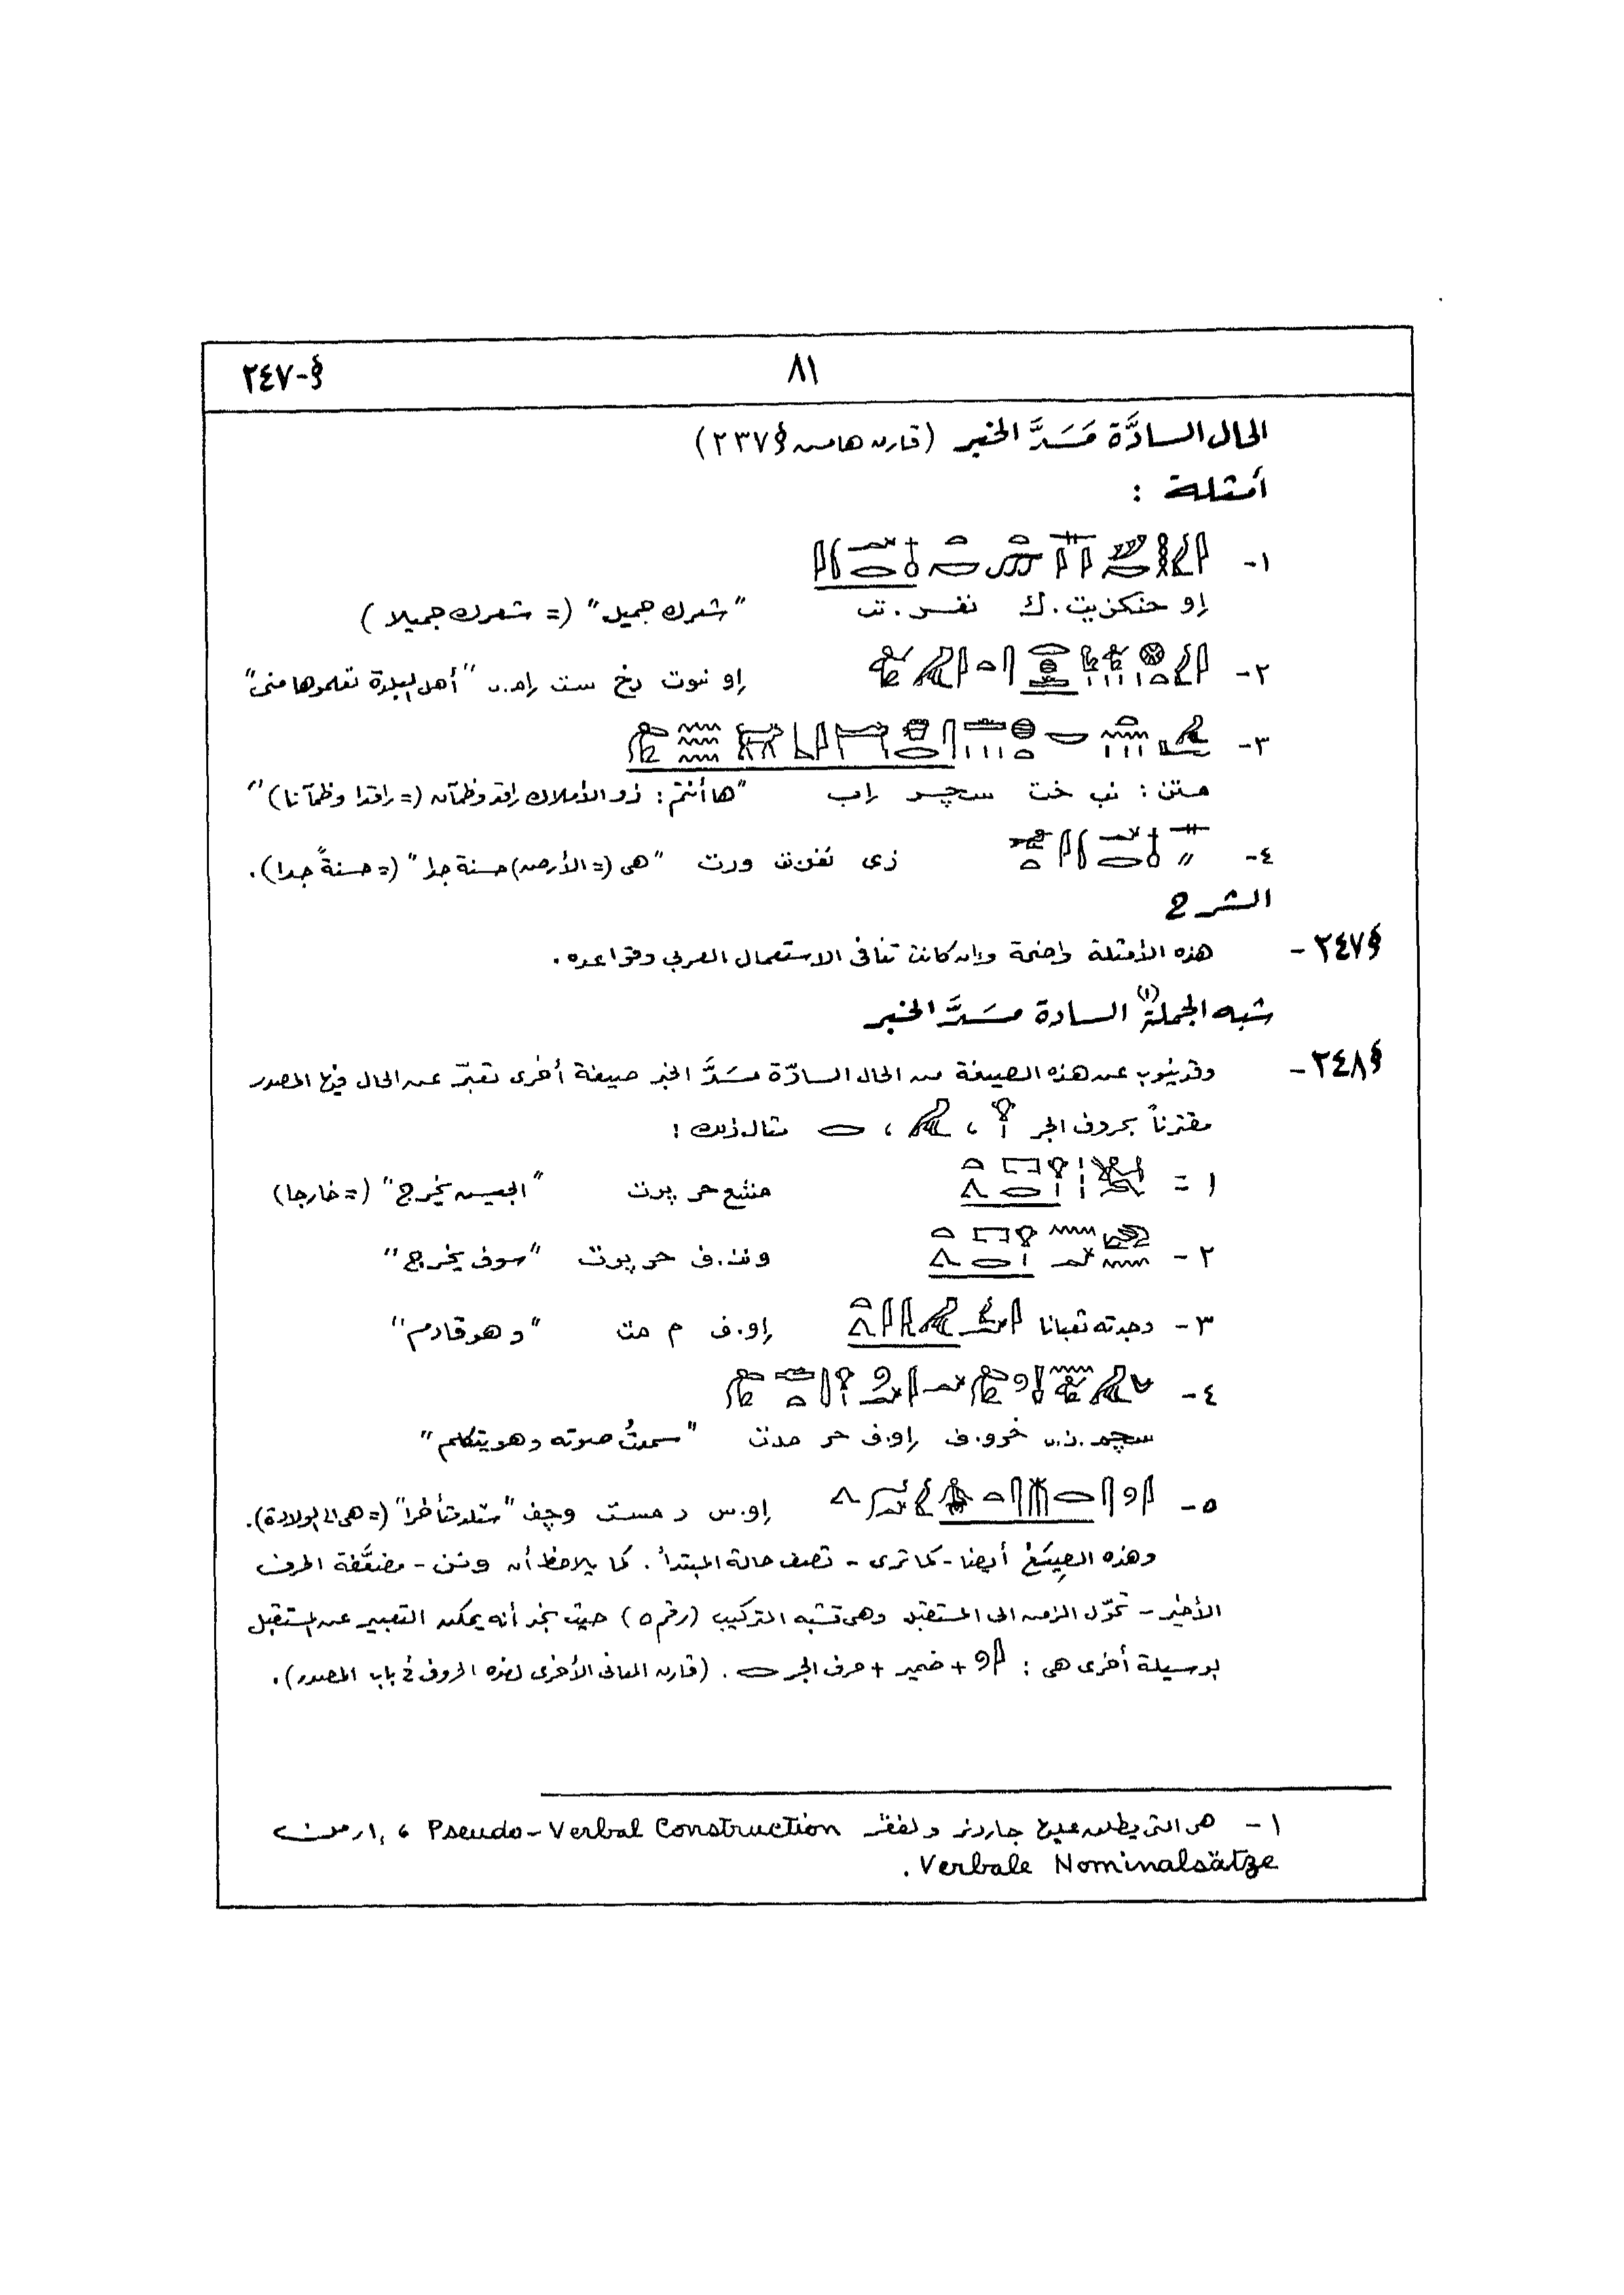 §-٢٤٧
٨١
الحال السادَّة مَسَدَّ الخبر (قارن هامش §٢٣٧)
أمثلة :
١-
إو حنكزيت.ك نفر.تى "شعرك جميل" (= شعرك جميلا)
٢- إو نيوت رخ ست "أهل البلدة تعلموها منى"
٣-
متن : نب خت سچر إب "ها أنتم : ذو الأملاك راقد وظمآن (= راقدا وظمآنا)"
٤- زى نفرت ورت "هى (= الأرض) حسنة جدا" (= حسنةً جدا).
الشرح
§٢٤٧- هذه الأمثلة واضحة وإن كانت تنافى الاستعمال العربي وقواعده.
شبه الجملة(١) السادة مسَدَّ الخبر
§٢٤٨- وقد ينوب عن هذه الصيغة من الحال السادّة مسَدَّ الخبر صيغة أخرى تعبّر عن الحال فيها المصدر
مقترناً بحروف الجر ، ، مثال ذلك :
١= منفع حر پرت "الجيش يخرج" (= خارجا)
٢- ونن.ف حر پرت "سوف يخرج"
٣- وجدته ثعبانا إو.ف م مت "وهو قادم"
٤-
سچم.ن خرو.ف إو.ف حر مدت "سمعتُ صوته وهو يتكلم"
٥- إو.س ر مست وچف "ستلد متأخرا" (= هى الى الولادة).
وهذه الصِيَغ أيضا - كما ترى - تصف حالة المبتدأ. كما يلاحظ أن ونن - مضعَّفة الحرف
الأخير - تحوّل الزمن الى المستقبل وهى تشبه التركيب (رقم ٥) حيث نجد أنه يمكن التعبير عن المستقبل
بوسيلة أخرى هى : + ضمير + حرف الجر . (قارن المعانى الأخرى لهذه الحروف فى باب المصدر).
١- هى التى يطلق عليها جاردنر ولفقر Pseudo-Verbal Construction ، إرمان
Verbale Nominalsätze.